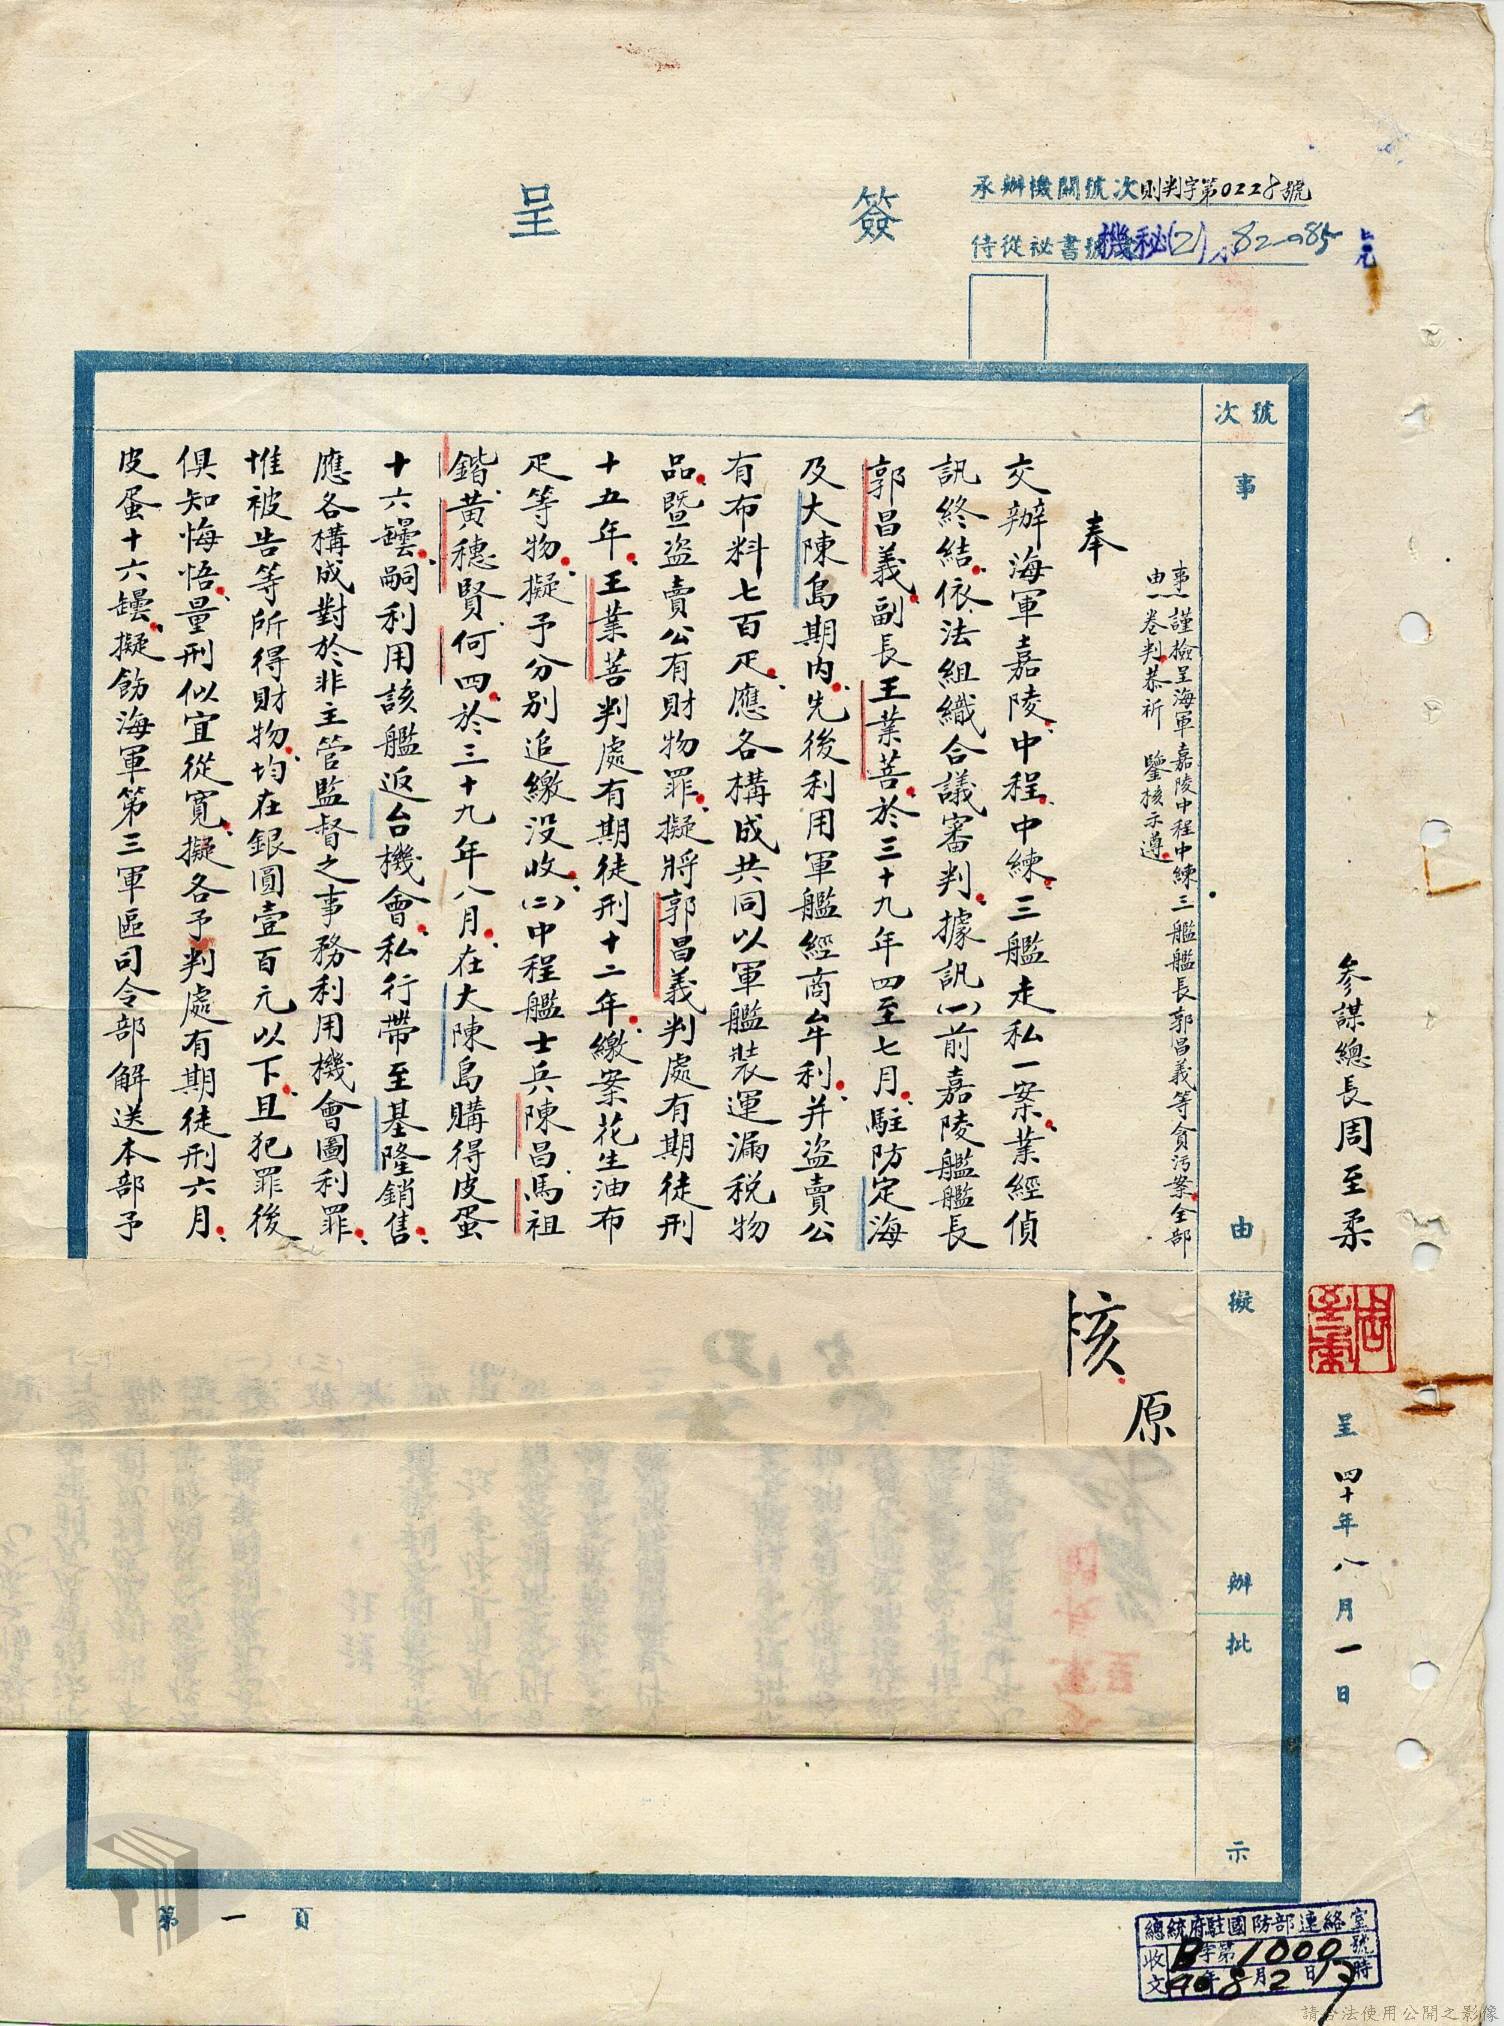 簽呈
承辦機關號次則判字第0228號
侍從祕書號機秘(乙)82085
號次
事由
擬辦
批示
參謀總長周至柔
周至柔
呈 四十年八月一日
事由 一、謹檢呈海軍嘉陵中程中練三艦艦長郭昌義等貪污案全部
卷判恭祈 鑒核示遵
奉
交辦海軍嘉陵、中程、中練、三艦走私一案、業經偵
訊終結、依法組織合議審判、據訊(一)前嘉陵艦艦長
郭昌義、副長王業菩、於三十九年四至七月、駐防定海
及大陳島期內、先後利用軍艦經商牟利、并盜賣公
有布料七百疋、應各構成共同以軍艦裝運漏稅物
品、暨盜賣公有財物罪、擬將郭昌義判處有期徒刑
十五年、王業菩判處有期徒刑十二年、繳案花生油布
疋等物、擬予分別追繳没收、(二)中程艦士兵陳昌、馬祖
鍇、黃穗賢、何四、於三十九年八月、在大陳島購得皮蛋
十六罎、嗣利用該艦返台機會、私行帶至基隆銷售、
應各構成對於非主管監督之事務利用機會圖利罪、
惟被告等所得財物、均在銀圓壹百元以下、且犯罪後
俱知悔悟、量刑似宜從寬、擬各予判處有期徒刑六月、
皮蛋十六罎、擬飭海軍第三軍區司令部解送本部予
核
原
第一頁
總統府駐國防部連絡室
收文 B字第1000號
40年8月2日17時
請合法使用公開之影像